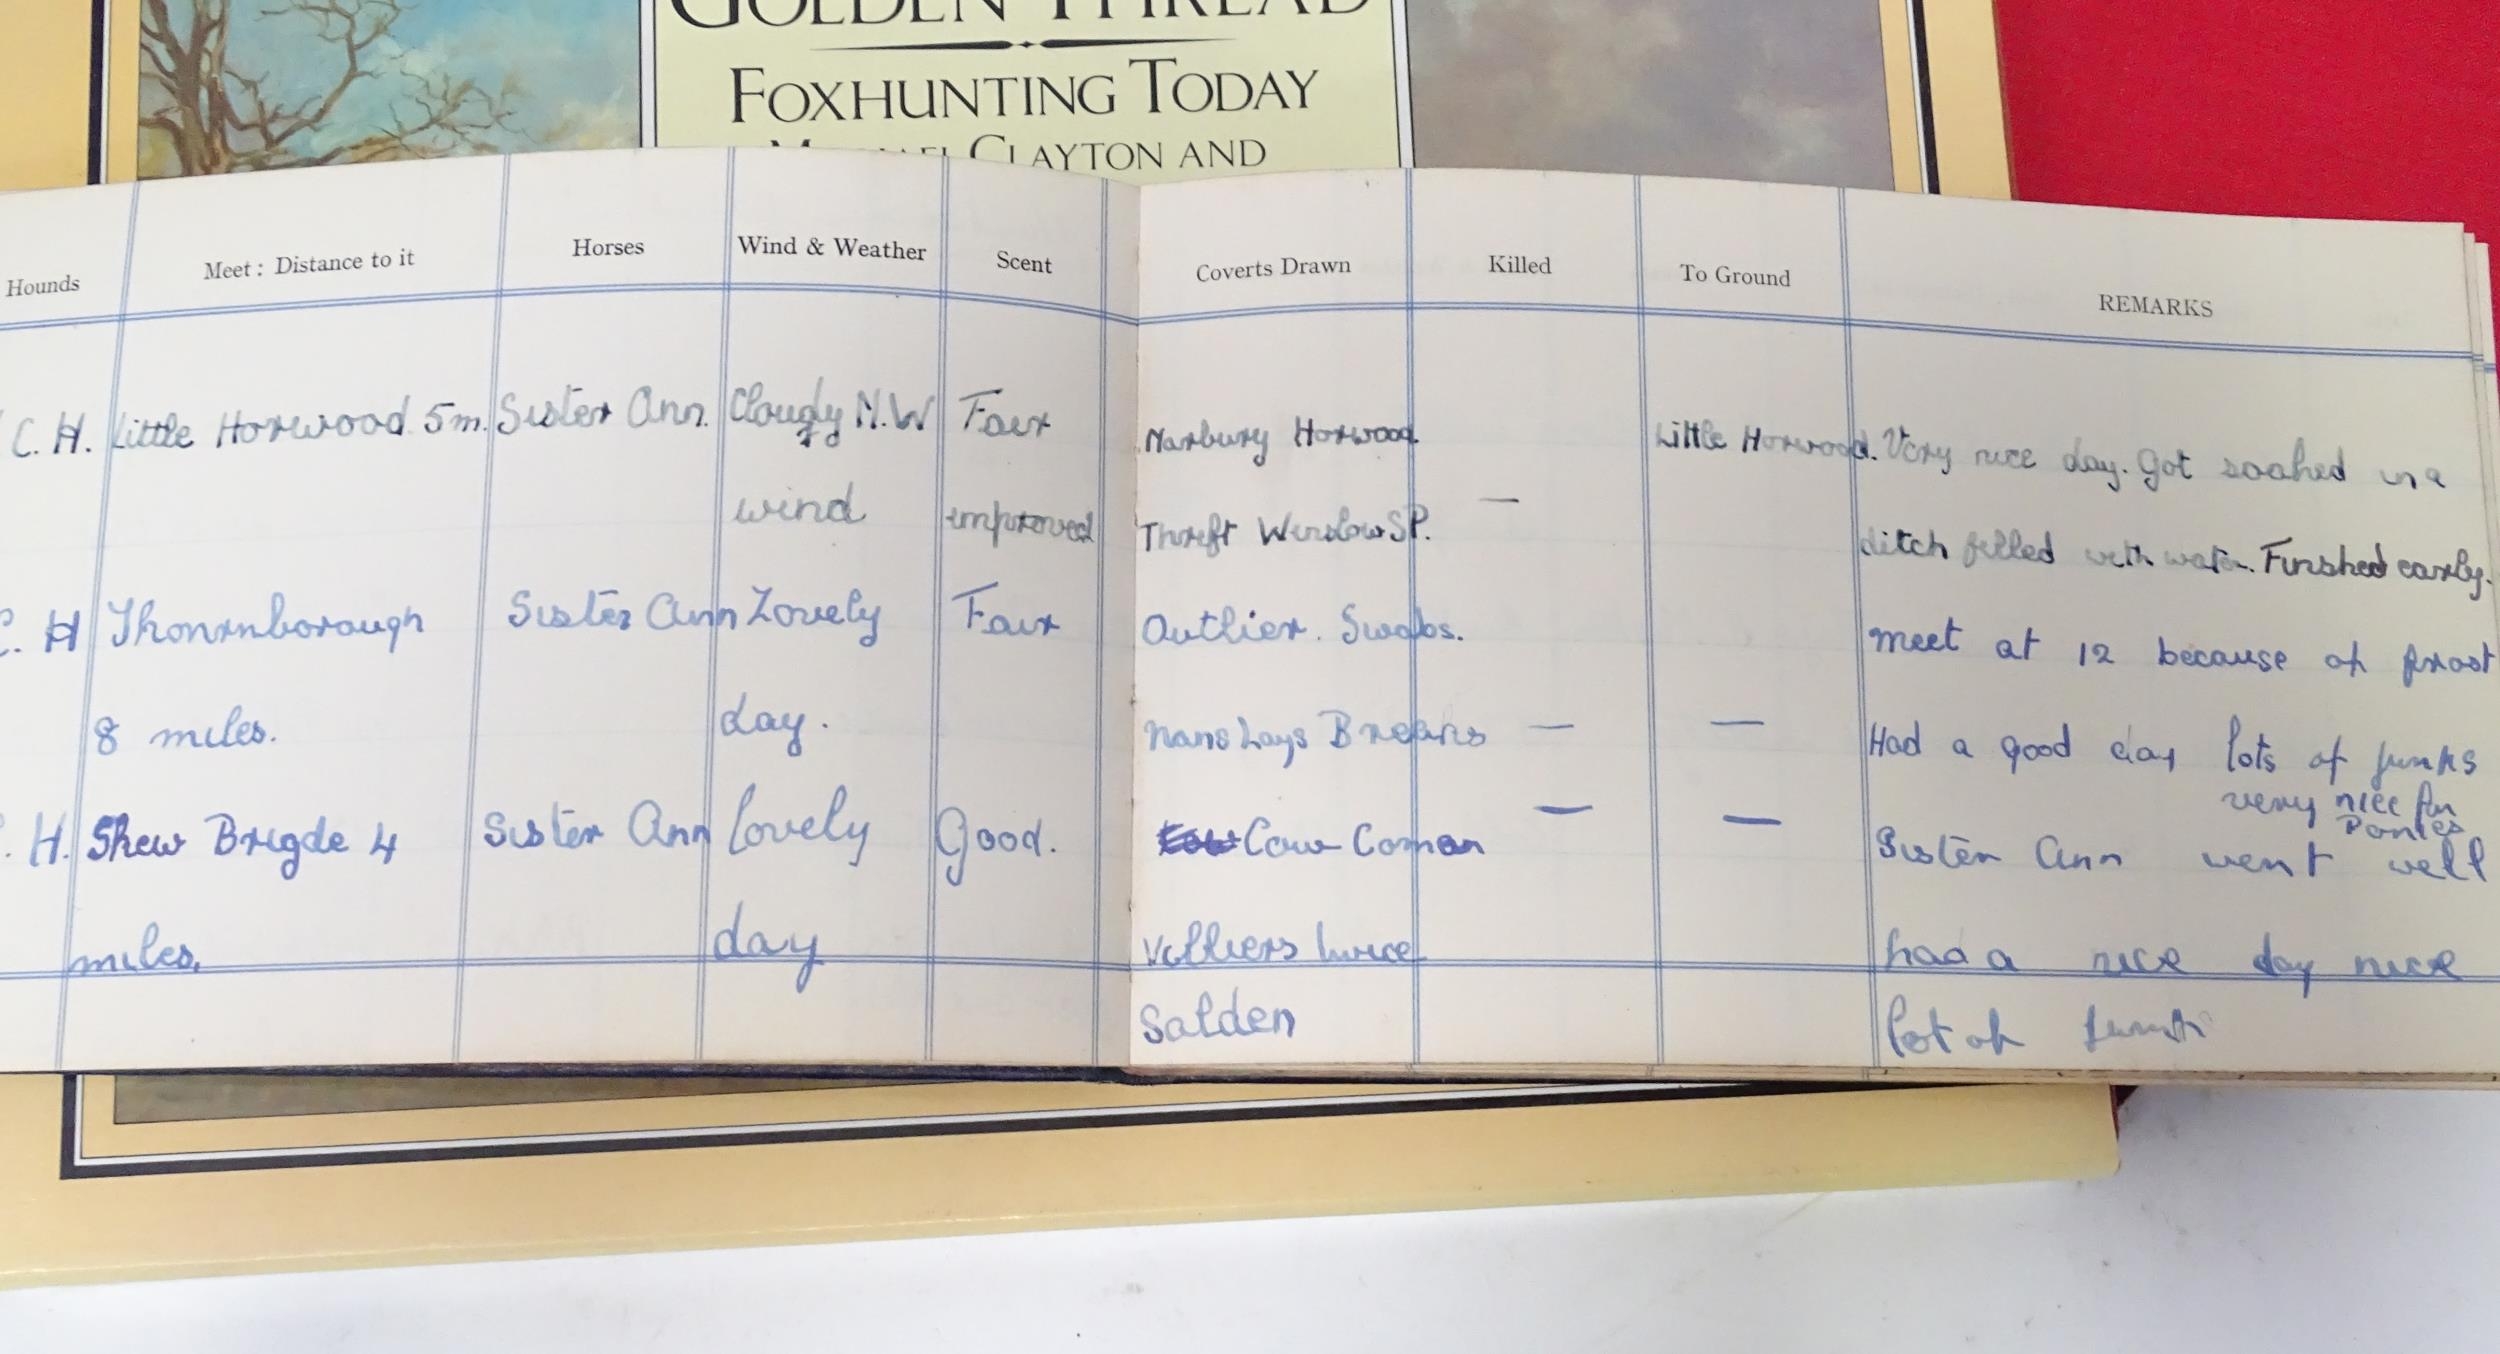 GOLDEN THREAD
FOXHUNTING TODAY
CLAYTON AND
Hounds
Meet: Distance to it
Horses
Wind & Weather
Scent
Coverts Drawn
Killed
To Ground
REMARKS
C. H. Little Horwood 5m. Sister Ann. Cloudy N.W Fair
wind improved
Narbury Horwood Little Horwood. Very nice day. Got soaked in a
Thrift Winslow SP. — ditch filled with water. Finshed early.
C. H Thornborough Sister Ann Lovely Fair
8 miles. day.
Outlier. Swabs. meet at 12 because of frost
— — Had a good day lots of
very nice for
Ponies
. H. Skew Brigde 4 Sister Ann lovely Good.
miles. day
Cow Coman — — Sister Ann went well
Villiers twice had a nice day nice
Salden lot of